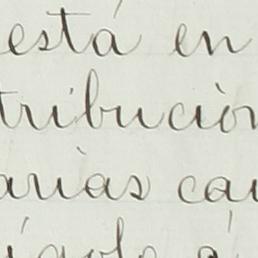 está en
tribución
arias cau